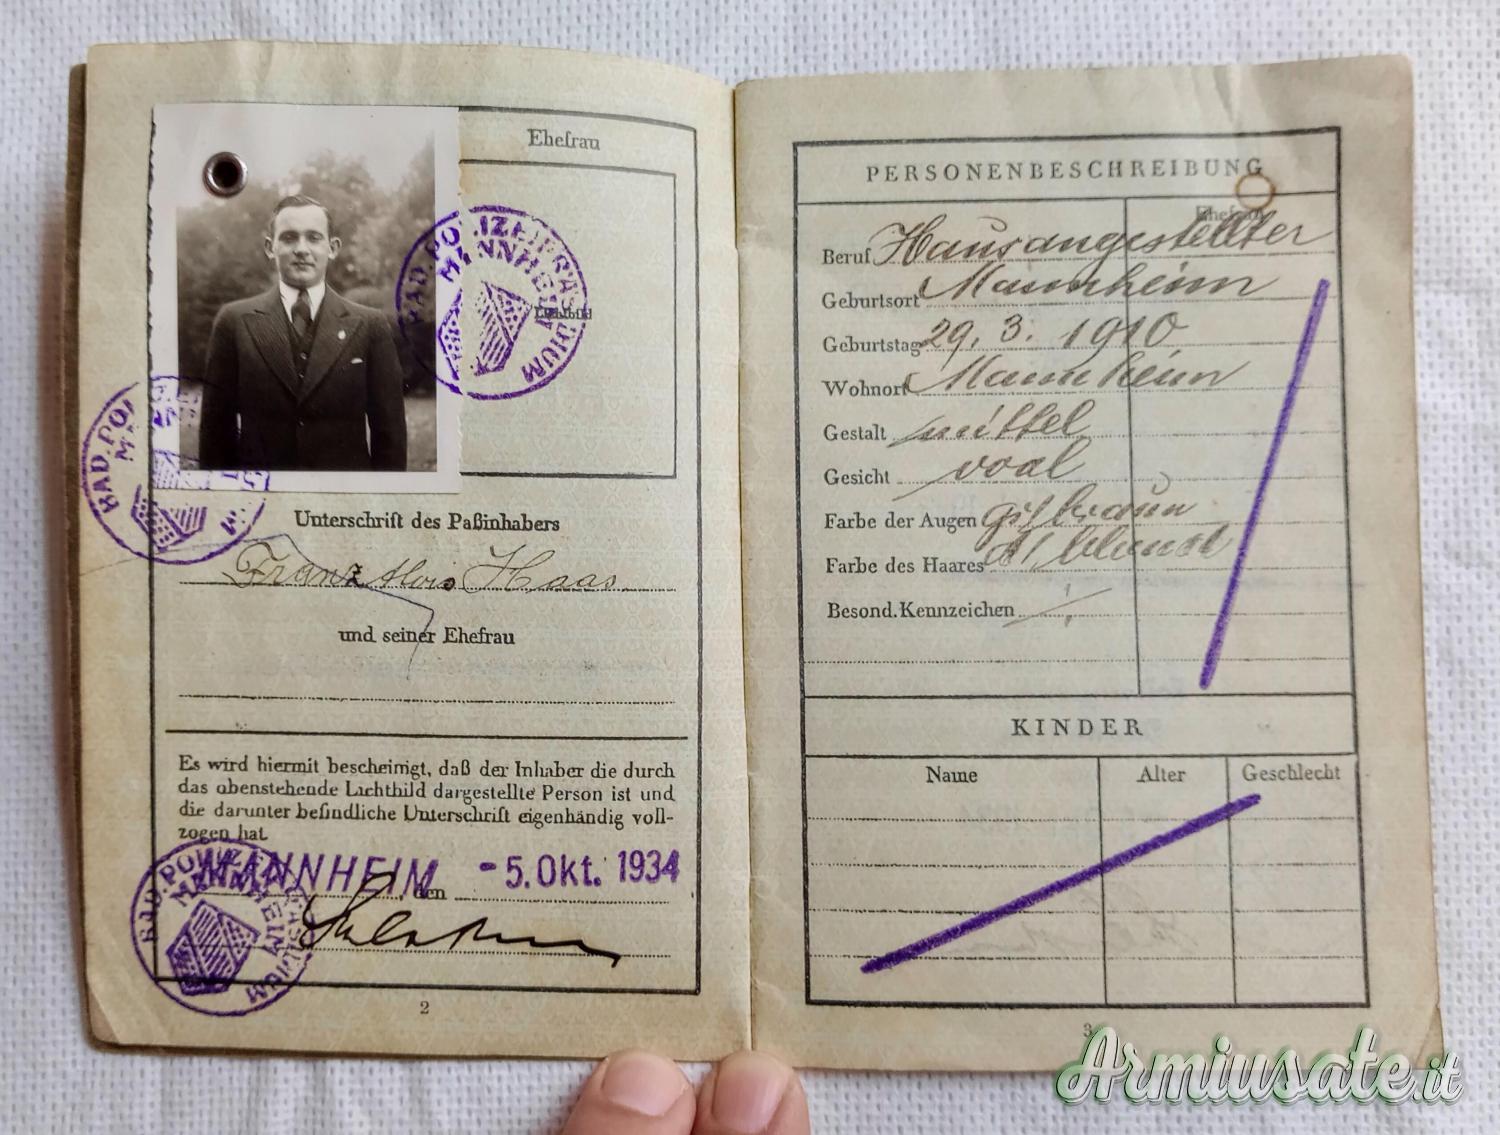 Ehefrau
Lichtbild
BAD. POLIZEIPRÄSIDIUM
MANNHEIM
Unterschrift des Paßinhabers
Franz Alois Haas
und seiner Ehefrau
Es wird hiermit bescheinigt, daß der Inhaber die durch
das obenstehende Lichtbild dargestellte Person ist und
die darunter befindliche Unterschrift eigenhändig voll-
zogen hat
MANNHEIM, den - 5. Okt. 1934
BAD. POLIZEIPRÄSIDIUM
MANNHEIM
2
PERSONENBESCHREIBUNG
Ehefrau
Beruf Hausangestellter
Geburtsort Mannheim
Geburtstag 29. 3. 1910
Wohnort Mannheim
Gestalt mittel
Gesicht voal
Farbe der Augen braun
Farbe des Haares blond
Besond. Kennzeichen
KINDER
Name Alter Geschlecht
3
Armiusate.it